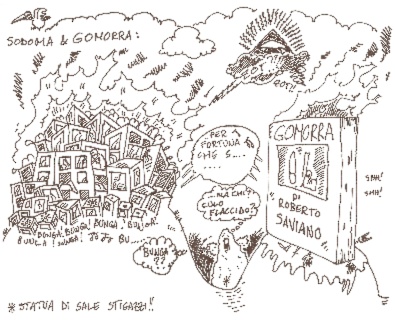 SODOMA & GOMORRA:
BUNGA! BUNGA! BUNGA! BUNGA!
BUNGA! BUNGA!
BUNGA
??
PER
FORTUNA
CHE S...
.....
...MA CHI?
CULO
FLACCIDO?
GOMORRA
DI
ROBERTO
SAVIANO
SMH!
SMH!
* STATUA DI SALE STIGAZZI!!